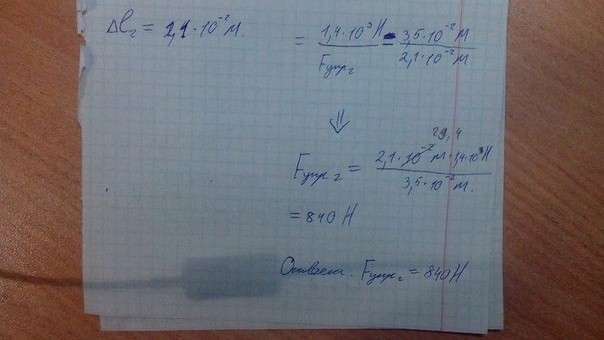 Δl₂ = 2,1·10⁻²м.
= 1,4·10³Н / Fупр₂ = 3,5·10⁻²м / 2,1·10⁻²м
⇓
29,4
Fупр₂ = 2,1·10⁻²м·1,4·10³Н / 3,5·10⁻²м.
= 840 Н
Ответ: Fупр₂ = 840Н